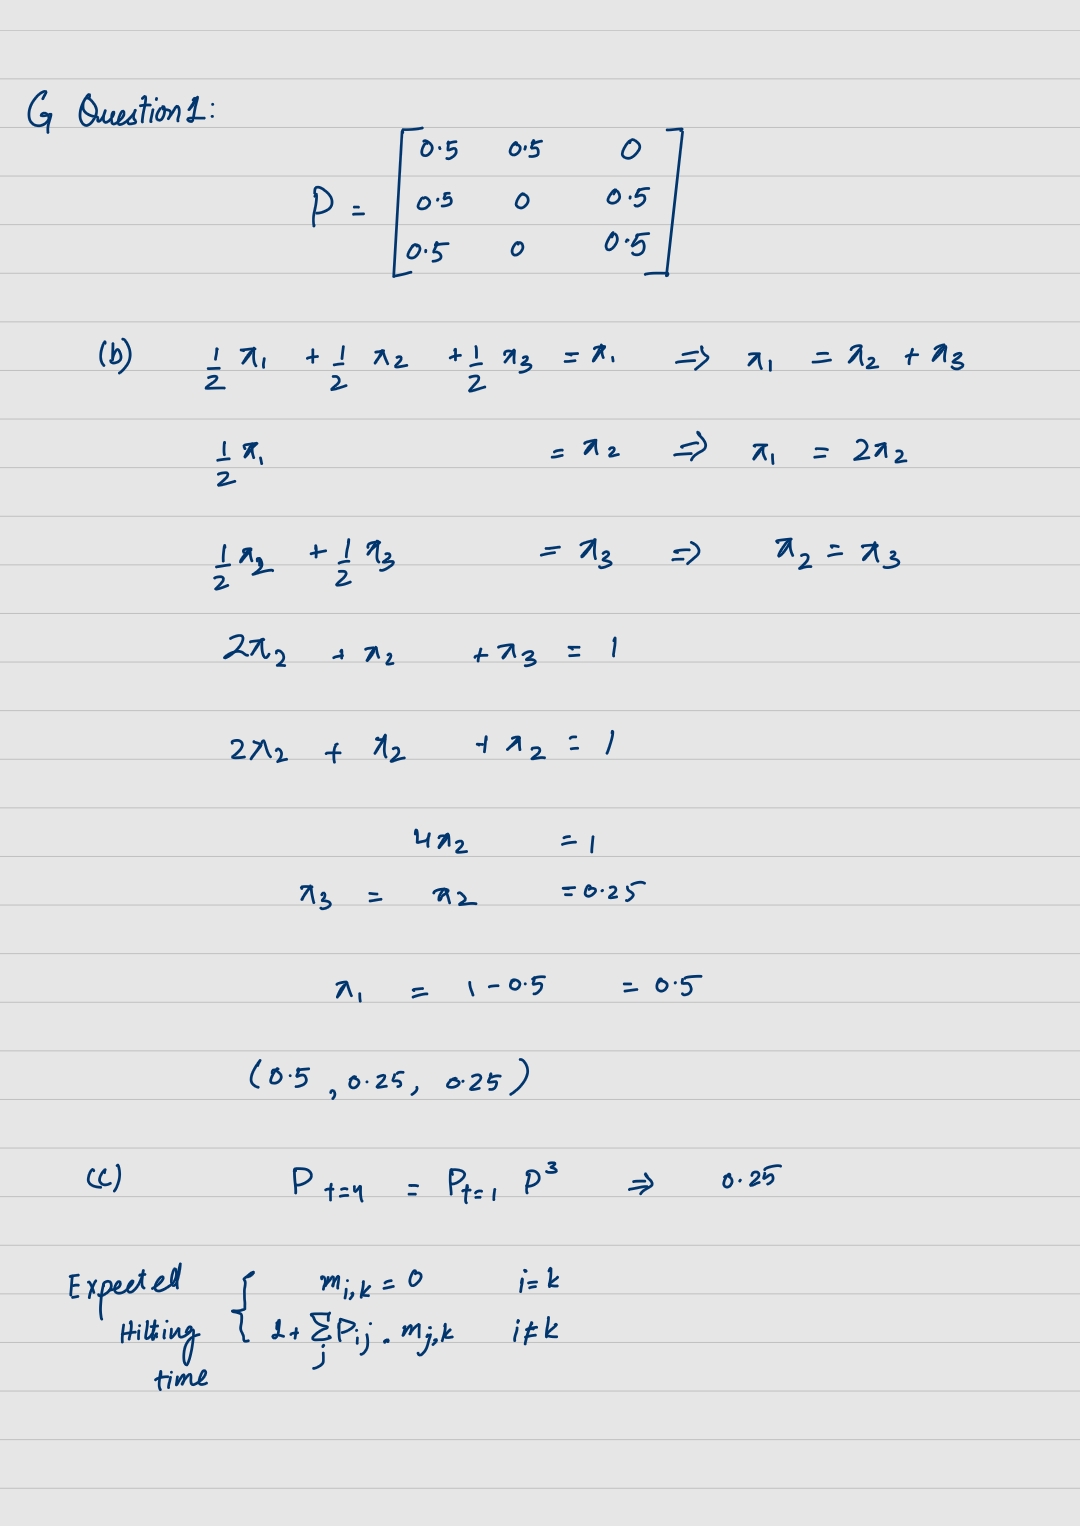 G Question 1:
P = [ 0.5 0.5 0
0.5 0 0.5
0.5 0 0.5 ]
(b) 1/2 π1 + 1/2 π2 + 1/2 π3 = π1 ⇒ π1 = π2 + π3
1/2 π1 = π2 ⇒ π1 = 2π2
1/2 π2 + 1/2 π3 = π3 ⇒ π2 = π3
2π2 + π2 + π3 = 1
2π2 + π2 + π2 = 1
4π2 = 1
π3 = π2 = 0.25
π1 = 1 - 0.5 = 0.5
(0.5, 0.25, 0.25)
(c) P t=4 = P t=1 P^3 ⇒ 0.25
Expected { m i,k = 0 i = k
Hitting 1 + Σ j P ij . m j,k i ≠ k
time